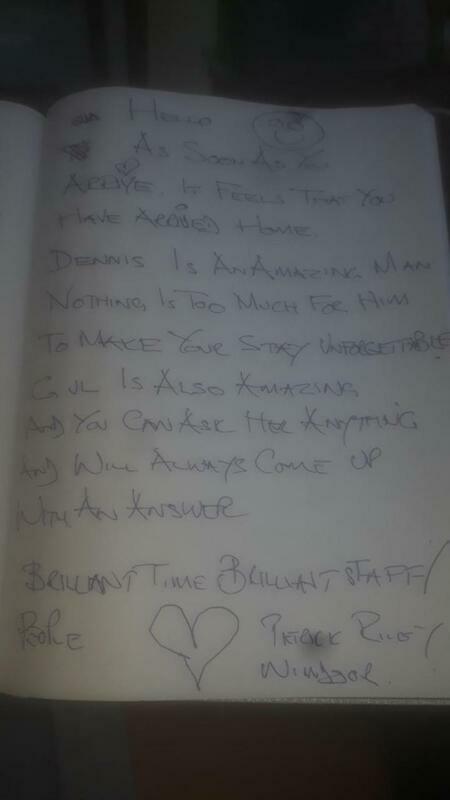 Hello
As Soon As You
Arrive. It Feels That You
Have Arrived Home.
Dennis Is An Amazing Man
Nothing Is Too Much For Him
To Make Your Stay Unforgetable
Gul Is Also Amazing
And You Can Ask Her Anything
And Will Always Come Up
With An Answer
Brilliant Time Brilliant Staff/
People Patrick Riley/
Windsor.